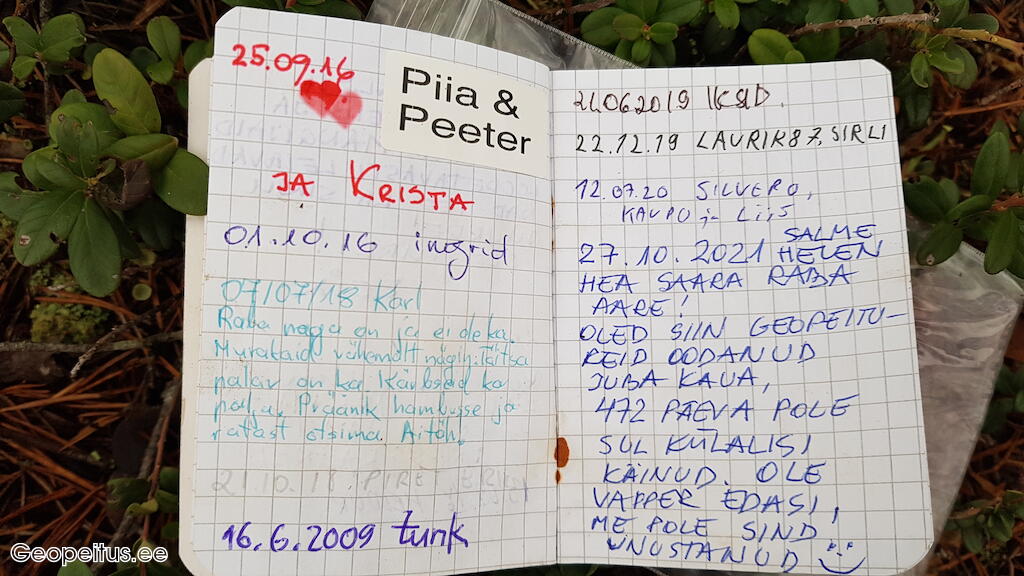 25.09.16
Piia &
Peeter
JA KRISTA
01.10.16 ingrid
07/07/18 Karl
Raba nagja on ja ei ole ka.
Murakaid vähemalt nägin. Täitsa
palav on ka. Kärbseid ka
palju. Präänik hambusse ja
ratast otsima. Aitäh!
21.10.18. PIRET, ERIK
16.6.2009 tunk
21.06.2019
22.12.19 LAURIK87, SIRLI
12.07.20 SILVERO,
KAUPO ja Liis
SALME
27.10.2021 HELEN
HEA SAARA RABA
AARE!
OLED SIIN GEOPEITU-
REID OODANUD
JUBA KAUA,
472 PÄEVA POLE
SUL KÜLALISI
KÄINUD. OLE
VAPPER EDASI,
ME POLE SIND
UNUSTANUD
Geopeitus.ee